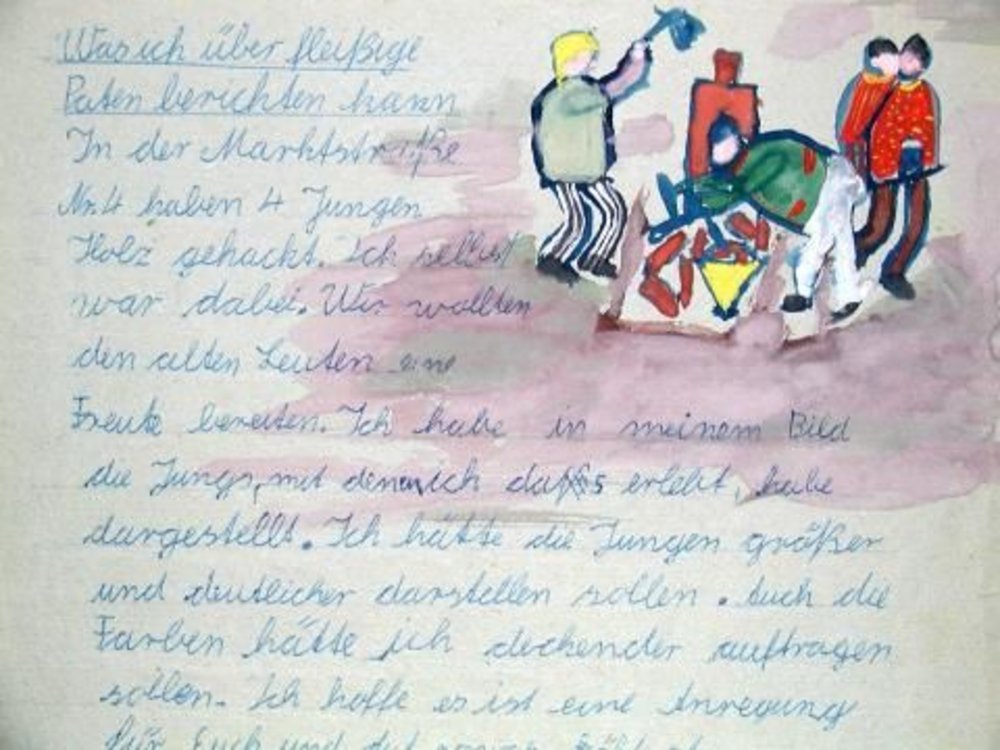 Was ich über fleißige
Paten berichten kann
In der Marktstraße
Nr. 4 haben 4 Jungen
Holz gehackt. Ich selbst
war dabei. Wir wollten
den alten Leuten eine
Freude bereiten. Ich habe in meinem Bild
die Jungs, mit denen ich das erlebt, habe
dargestellt. Ich hätte die Jungen größer
und deutlicher darstellen sollen. Auch die
Farben hätte ich deckender auftragen
sollen. Ich hoffe es ist eine Anregung
für Euch und